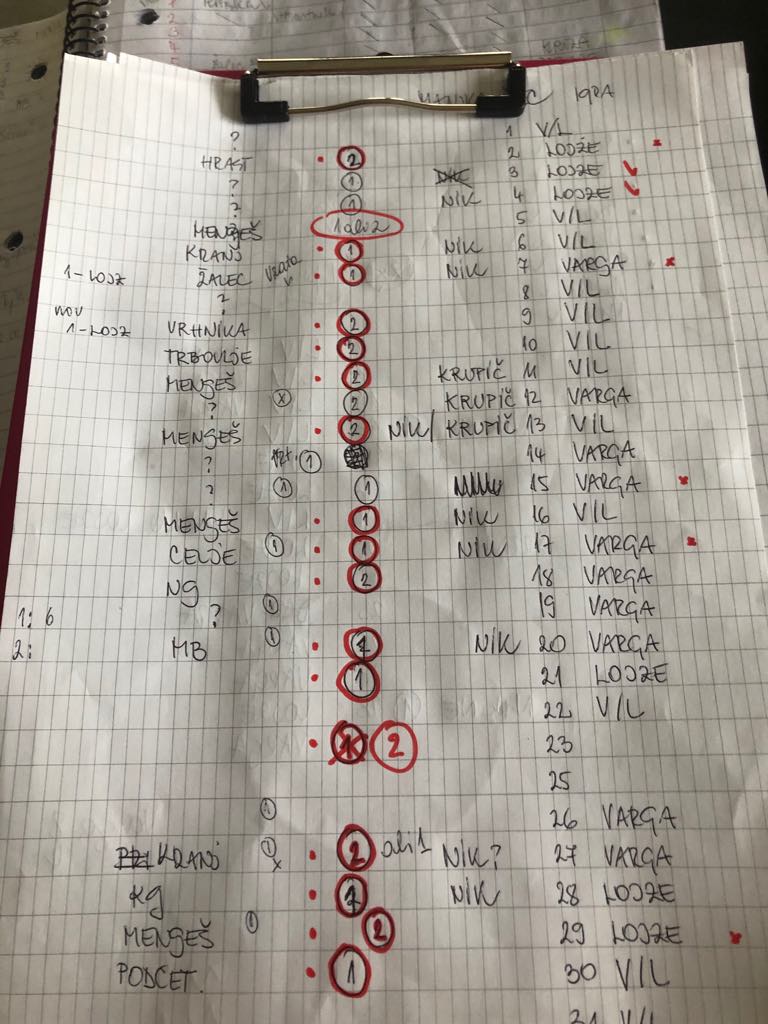 IGRA
? 1 V/L
HRAST 2 2 LOJZE
? 1 3 LOJZE
? 1 NIK 4 LOJZE
MENGEŠ 1 ali 2 5 V/L
KRANJ 1 NIK 6 V/L
1-LOJZ ŽALEC 1 NIK 7 VARGA
? 8 V/L
NOV ? 9 V/L
1-LOJZ VRHNIKA 2 10 V/L
TRBOVLJE 2
MENGEŠ 2 KRUPIČ 11 V/L
? X 2 KRUPIČ 12 VARGA
MENGEŠ 2 NIK/ KRUPIČ 13 V/L
? 1 14 VARGA
? 1 1 15 VARGA
MENGEŠ 1 NIK 16 V/L
CELJE 1 1 NIK 17 VARGA
NG 2 18 VARGA
1: 6 ? 1 19 VARGA
2: MB 1 NIK 20 VARGA
1 21 LOJZE
22 V/L
2 23
25
1 26 VARGA
KRANJ 1 x 2 ali 1 NIK? 27 VARGA
KG NIK 28 LOJZE
MENGEŠ 1 2 29 LOJZE
PODČET. 1 30 V/L
31 V/L